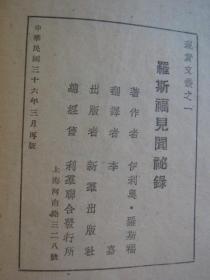 現實文叢之一
羅斯福見聞祕錄
著作者 伊利奧·羅斯福
翻譯者 李嘉
出版者 新羣出版社
總經售 利羣聯合發行所
上海河南路三二八號
中華民國三十六年三月再版